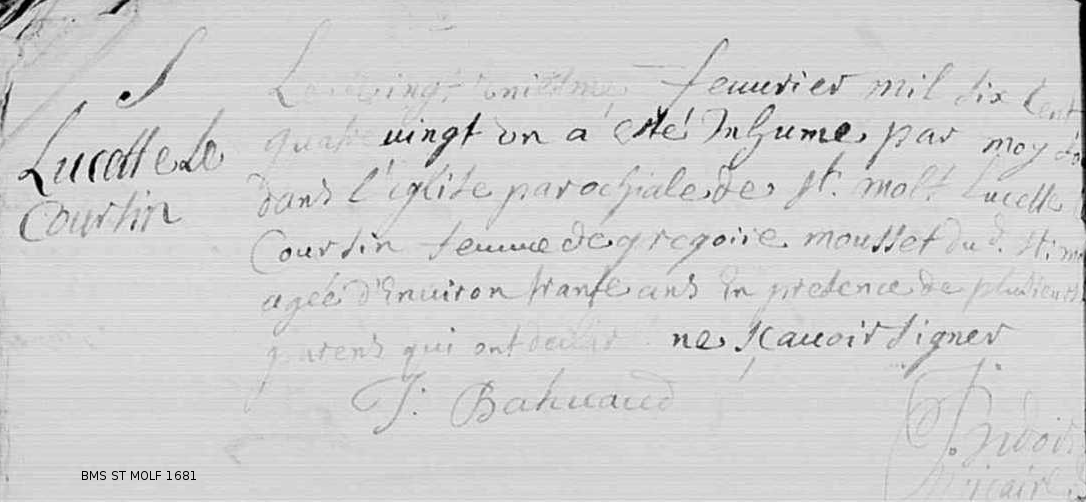 S
Lucette Le
Courtin
Le vingt uniesme feuurier mil six cent
quatre uingt un a esté Inhume par moy
dans l'eglise parochiale de st. molf Lucette
Courtin femme de gregoire mousset du d. st. mo
agée d'Enuiron trante ans En presence de plusieurs
parens qui ont declare ne scauoir signer
J. Bahuaud
vicaire
BMS ST MOLF 1681